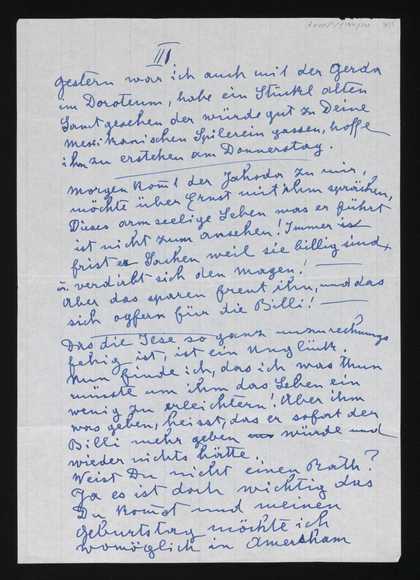 III
gestern war ich auch mit der Gerda
im Doroteum, habe ein Stückl alten
Samt gesehen der würde gut zu Deine
mexikanischen Spilerein passen, hoffe
ihm zu erstehen am Donnerstag.
Morgen komt der Jahoda zu mir,
möchte über Ernst mit ihm sprächen,
Dieses armseelige Leben was er führt
ist nicht zum ansehen! Immer ist
frist er Sachen weil sie billig sind
u. verdirbt sich den Magen!
Aber das sparen freut ihn, und das
sich opfern für die Billi!
Das die Ilse so ganz unzurechnungs
fehig ist, ist ein Unglück.
Nun finde ich, das ich was thun
müsste um ihm das Leben ein
wenig zu erleichtern! Aber ihm
was geben, heisst, das er sofort der
Billi mehr geben würde und
wieder nichts hätte.
Weist Du nicht einen Rath?
Ja es ist doch wichtig das
Du komst und meinen
Geburtstag möchte ich
womöglich in Amersham